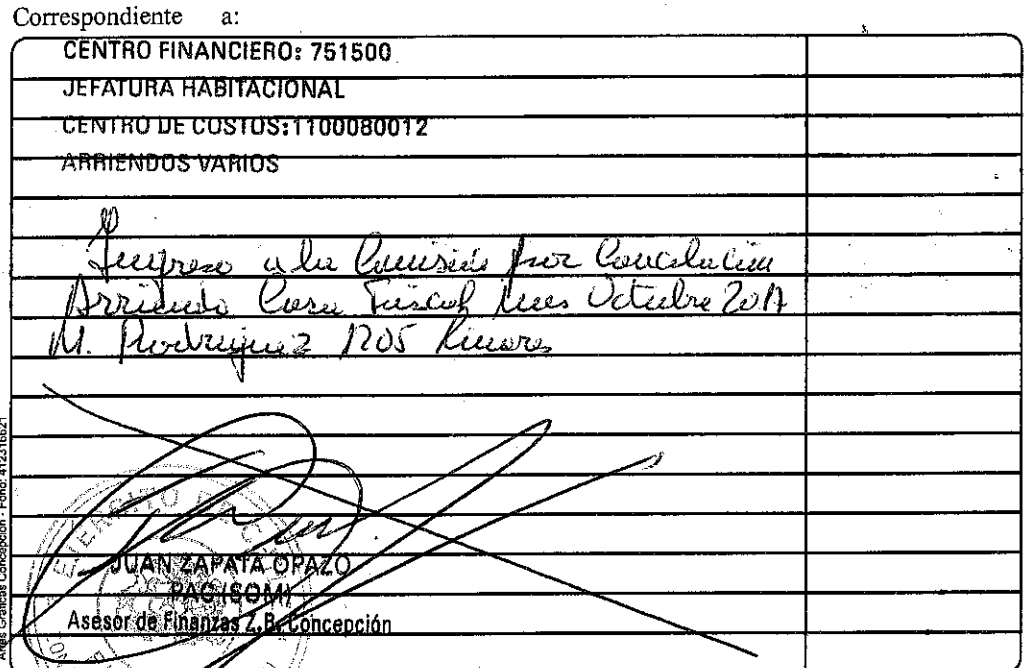 Correspondiente a:
CENTRO FINANCIERO: 751500
JEFATURA HABITACIONAL
CENTRO DE COSTOS:1100080012
ARRIENDOS VARIOS
Ingreso a la Comisión por Cancelación
Arriendo Casa Fiscal mes Octubre 2017
M. Rodriguez 1205 Linares
JUAN ZAPATA OPAZO
PAC (SOM)
Asesor de Finanzas Z.B. Concepción
Artes Gráficas Concepción - Fono: 412316621
EJERCITO DE